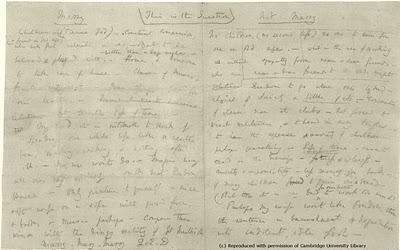 Marry
Children — (if it Please God) — Constant companion
(& friend in old age)
who will feel interested in one — object to be
beloved & played with. — better than a dog anyhow. —
Home, &
to take care of house —
for one's health. —
but terrible loss of time. —
My God, it is intolerable to think of
like a neuter
bee, working, working, & nothing after
all. — No, no won't do. — Imagine living
all one's day
House. — Only picture to yourself a nice
soft wife on a sofa with good fire,
& books & music perhaps — Compare this
vision with the dingy reality of Grt. Marlbro' St.
Marry — Mary — Marry Q.E.D.
This is the Question
Not Marry
No children, (no second life) no one to care for
one in old age. — What is the use of working
without sympathy from near & dear friends —
who are near & dear friends to the old, except
relatives
Freedom to go where one liked —
choice of Society & little of it. — Conversation
of clever men at clubs — Not forced to
visit relatives, & to bend in every trifle. —
to have the expense & anxiety of children —
perhaps quarelling — Loss of time. — cannot
read in the Evenings — fatness & idleness —
Anxiety & responsibility — less money for books &c —
if many children forced to gain one's bread. —
(But then it is very bad for ones health to work too much)
Perhaps my wife wont like London; then
the sentence is banishment & degradation
into indolent, idle fool —
(c) Reproduced with permission of Cambridge University Library